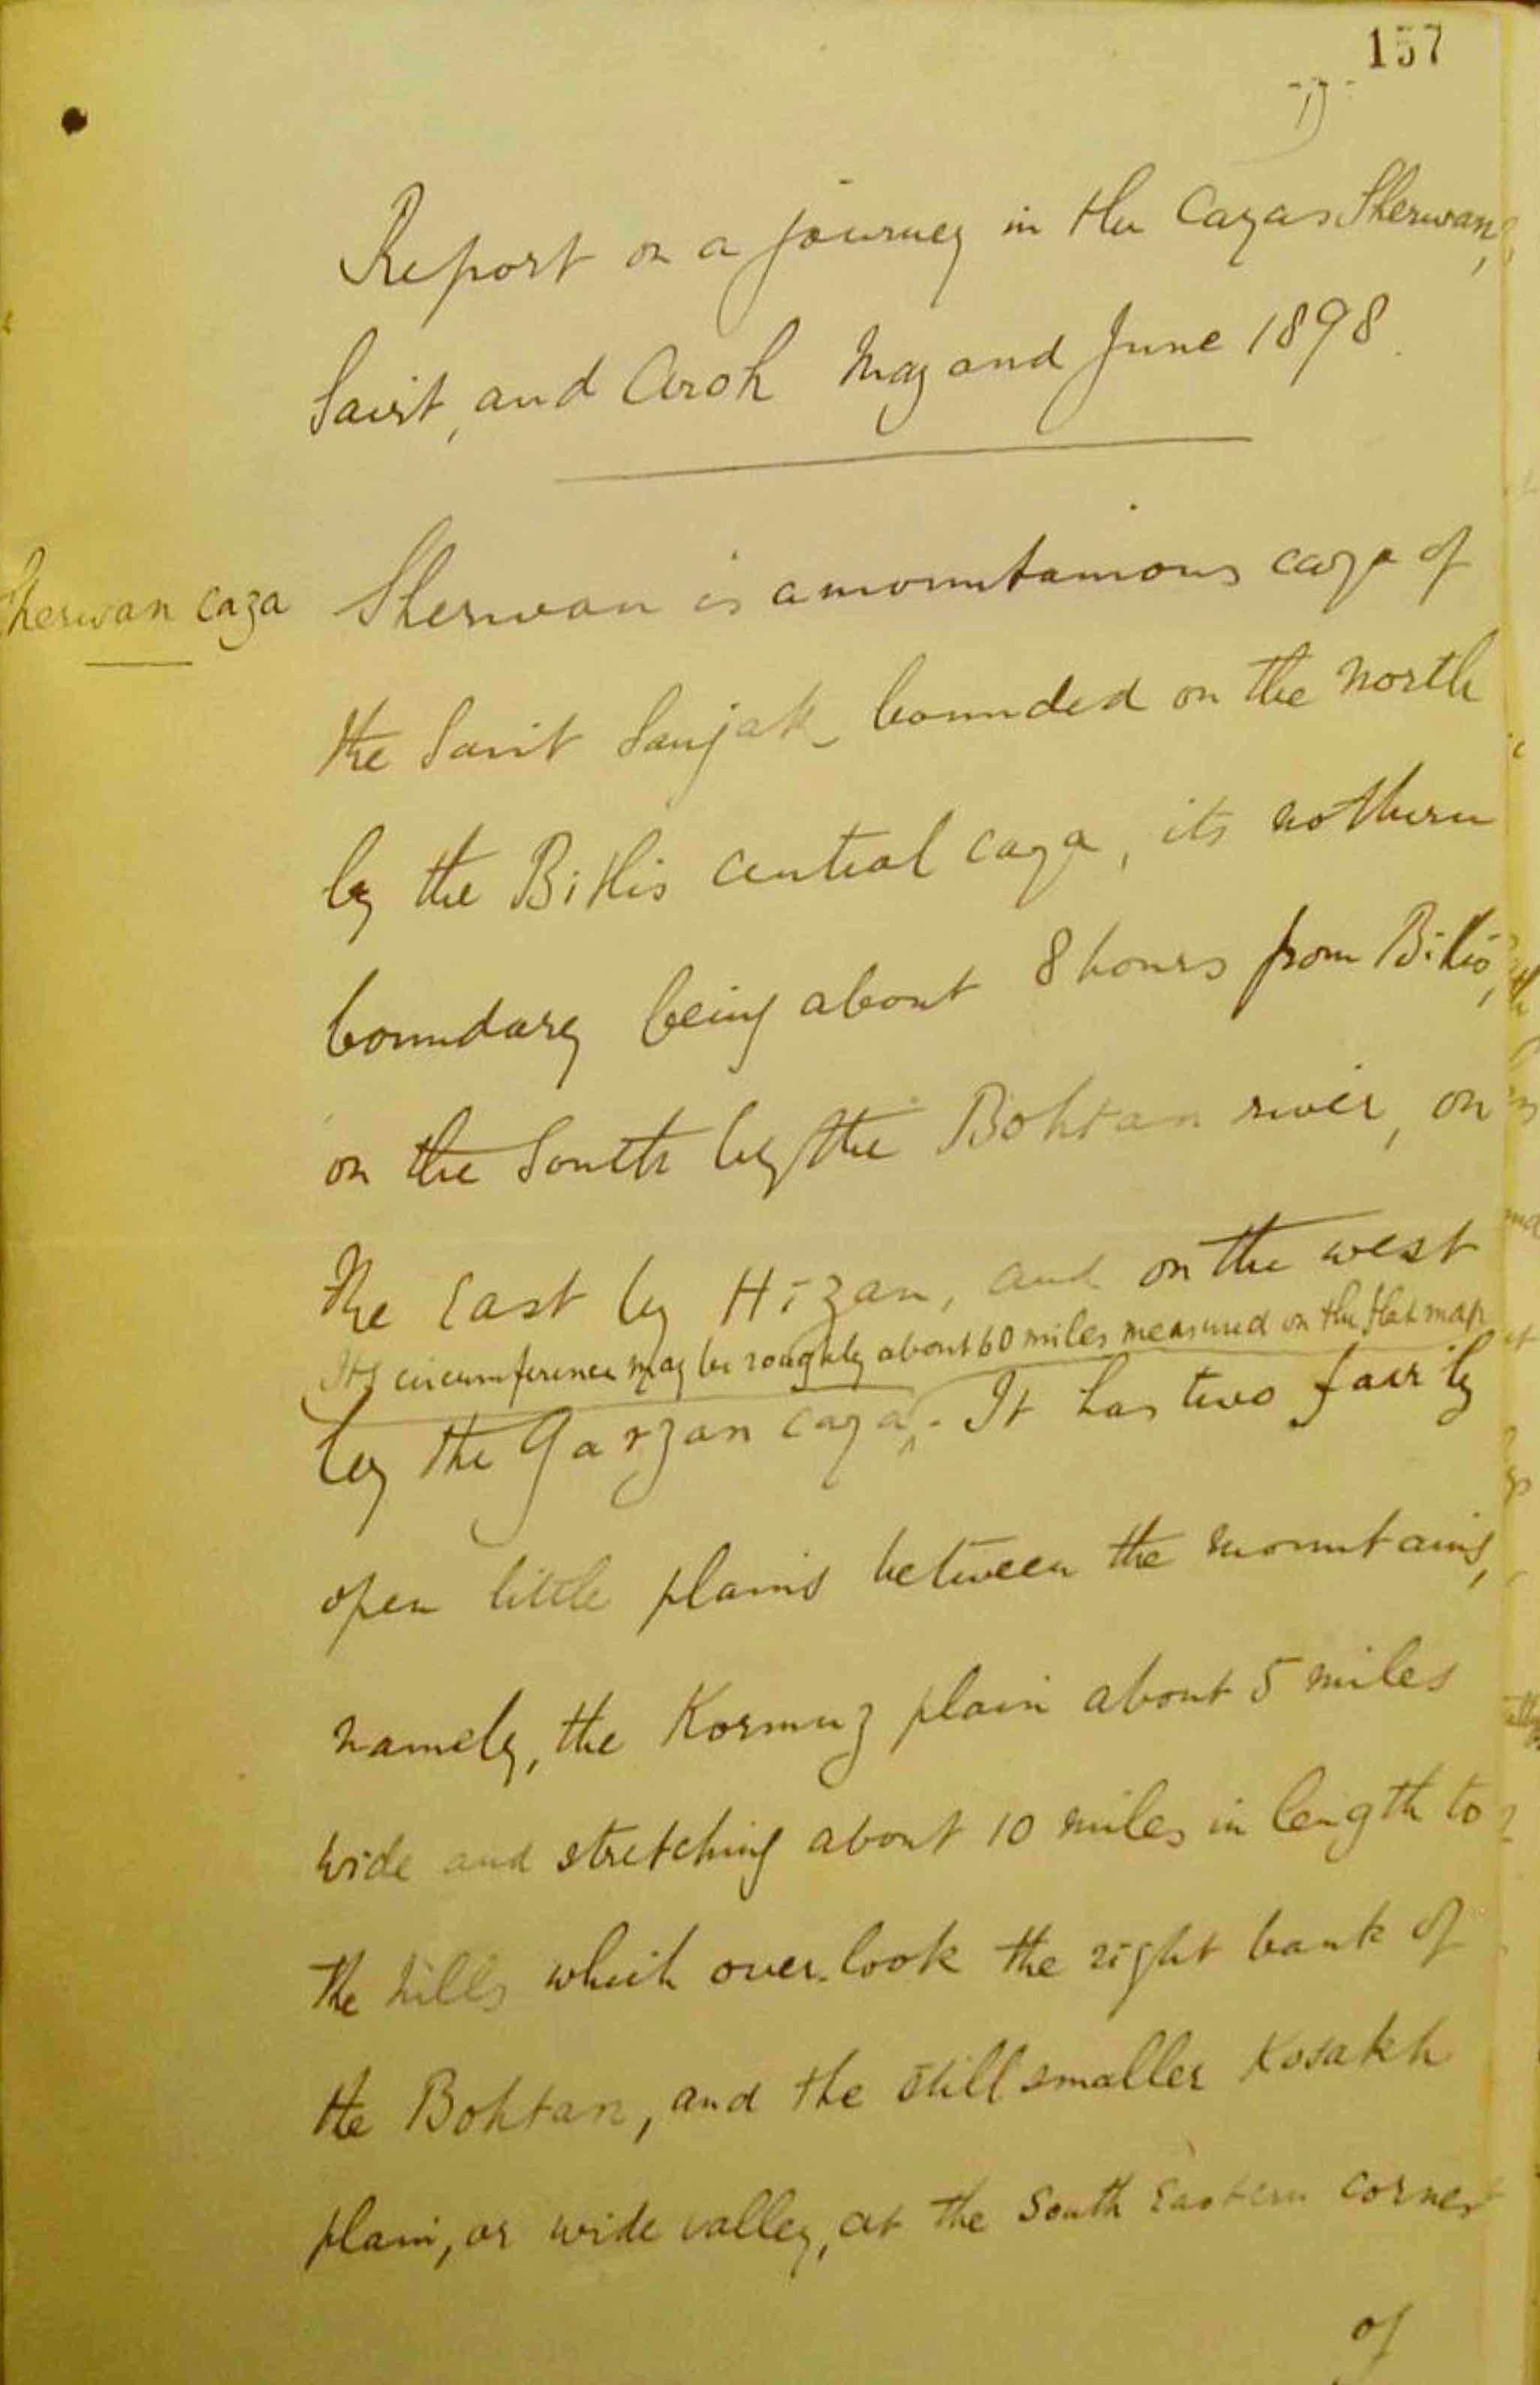 157
Report on a journey in the Cazas Sherwan,
Sairt, and Aroh May and June 1898.
Sherwan caza
Sherwan is a mountainous caza of
the Sairt Sanjak bounded on the North
by the Bitlis central caza, its nothern
boundary being about 8 hours from Bitlis,
on the South by the Bohtan river, on
the East by Hizan, and on the west
Its circumference may be roughly about 60 miles measured on the flat map
by the Garzan caza. It has two fairly
open little plains between the mountains,
namely, the Kormuz plain about 5 miles
wide and stretching about 10 miles in length to
the hills which over-look the right bank of
the Bohtan, and the still smaller Kosakh
plain, or wide valley, at the South Eastern corner
of